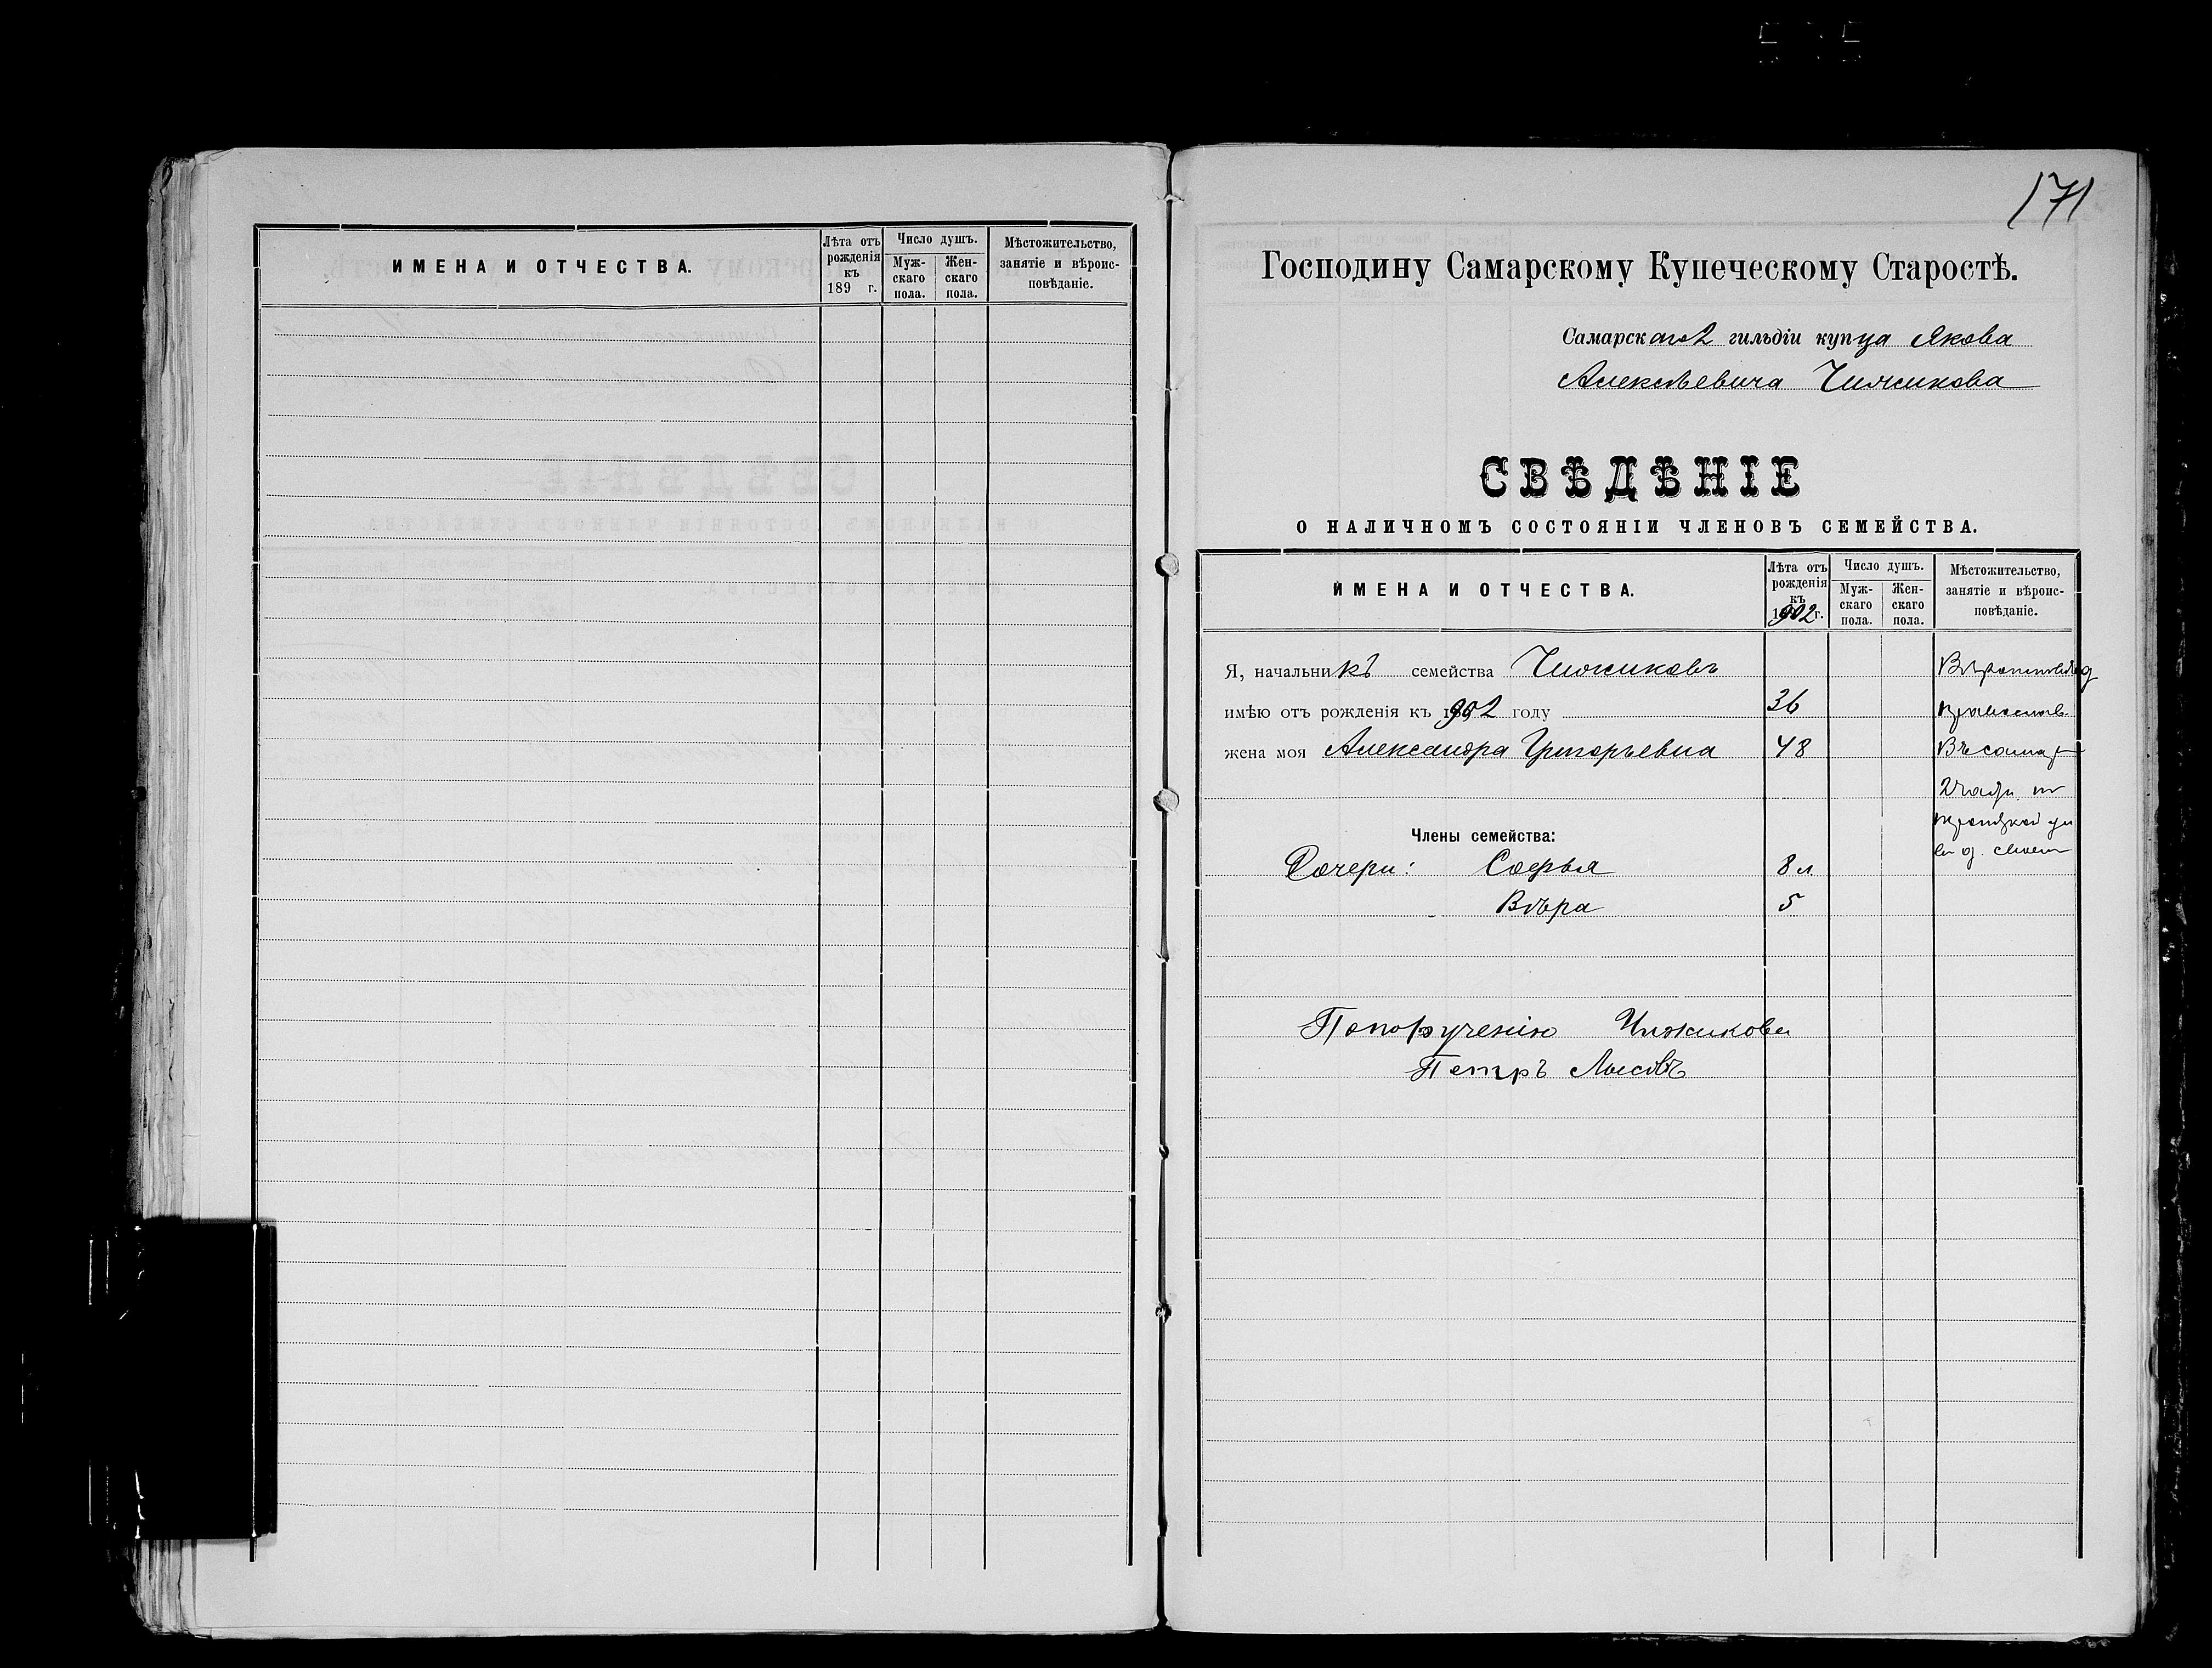 ИМЕНА И ОТЧЕСТВА.
Лѣта отъ рожденія къ 189 г.
Число душъ.
Мужскаго пола.
Женскаго пола.
Мѣстожительство, занятіе и вѣроисповѣданіе.
171
Господину Самарскому Купеческому Старостѣ.
Самарскаго 2 гильдіи купца Якова
Алексѣевича Чижикова
СВѢДѢНІЕ
О НАЛИЧНОМЪ СОСТОЯНІИ ЧЛЕНОВЪ СЕМЕЙСТВА.
ИМЕНА И ОТЧЕСТВА.
Лѣта отъ рожденія къ 1902 г.
Число душъ.
Мужскаго пола.
Женскаго пола.
Мѣстожительство, занятіе и вѣроисповѣданіе.
Я, начальникъ семейства Чижиковъ
имѣю отъ рожденія къ 1902 году 36 православ.
жена моя Александра Григорьевна 48
2 части
Члены семейства:
Дочери: Софья 8 л.
Вѣра 5
По порученію Чижикова
Петръ